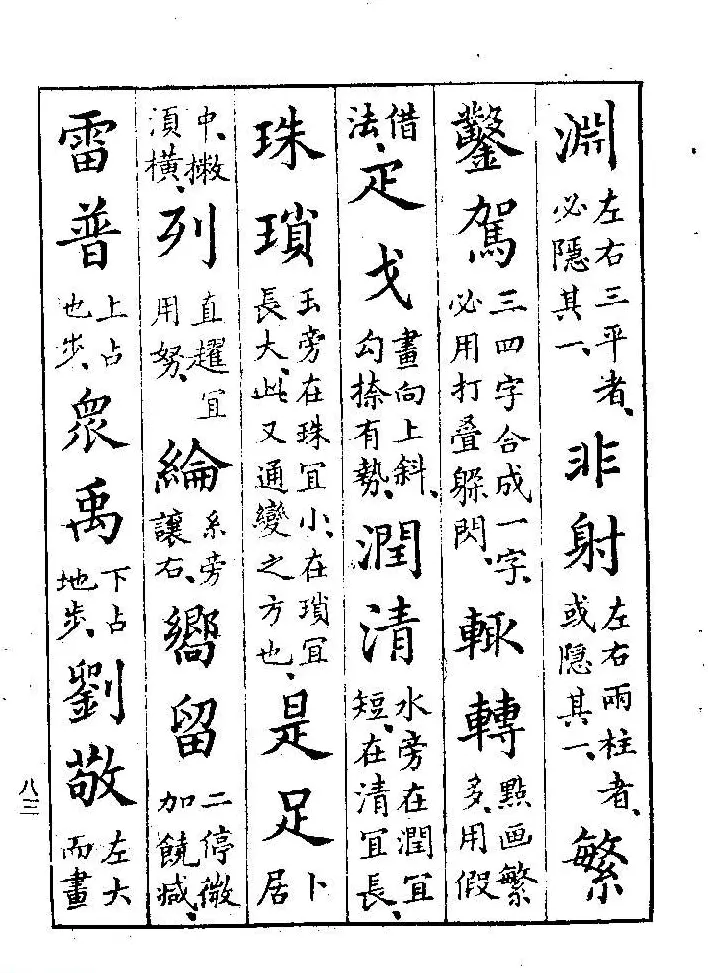 淵左右三平者、必隱其一、非射左右兩柱者、或隱其一、繁
鑿駕三四字合成一字、必用打叠躲閃、輙轉點画繁多、用假
借法、疋戈畫向上斜、勾捺有勢、潤清水旁在潤宜短、在清宜長、
珠瑣王旁在珠宜小、在瑣宜長大、此又通變之方也、是足卜居
中、撇須橫、列直趯宜用努、綸糸旁讓右、嚮留二停微加饒减、
雷普上占也步、眾禹下占地步、劉敬左大而畫
八三